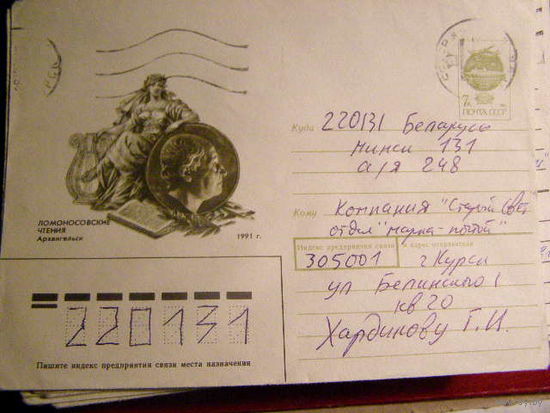 7к
ПОЧТА СССР
Куда 220131 Беларусь
Минск 131
а/я 248
ЛОМОНОСОВСКИЕ
ЧТЕНИЯ
Архангельск
1991 г.
Кому Компания "Старый Свет
отдел "марка-почтой"
Индекс предприятия связи и адрес отправителя
305001 г Курск
ул Белинского 1
кв 20
Хардикову Г.И.
220131
Пишите индекс предприятия связи места назначения